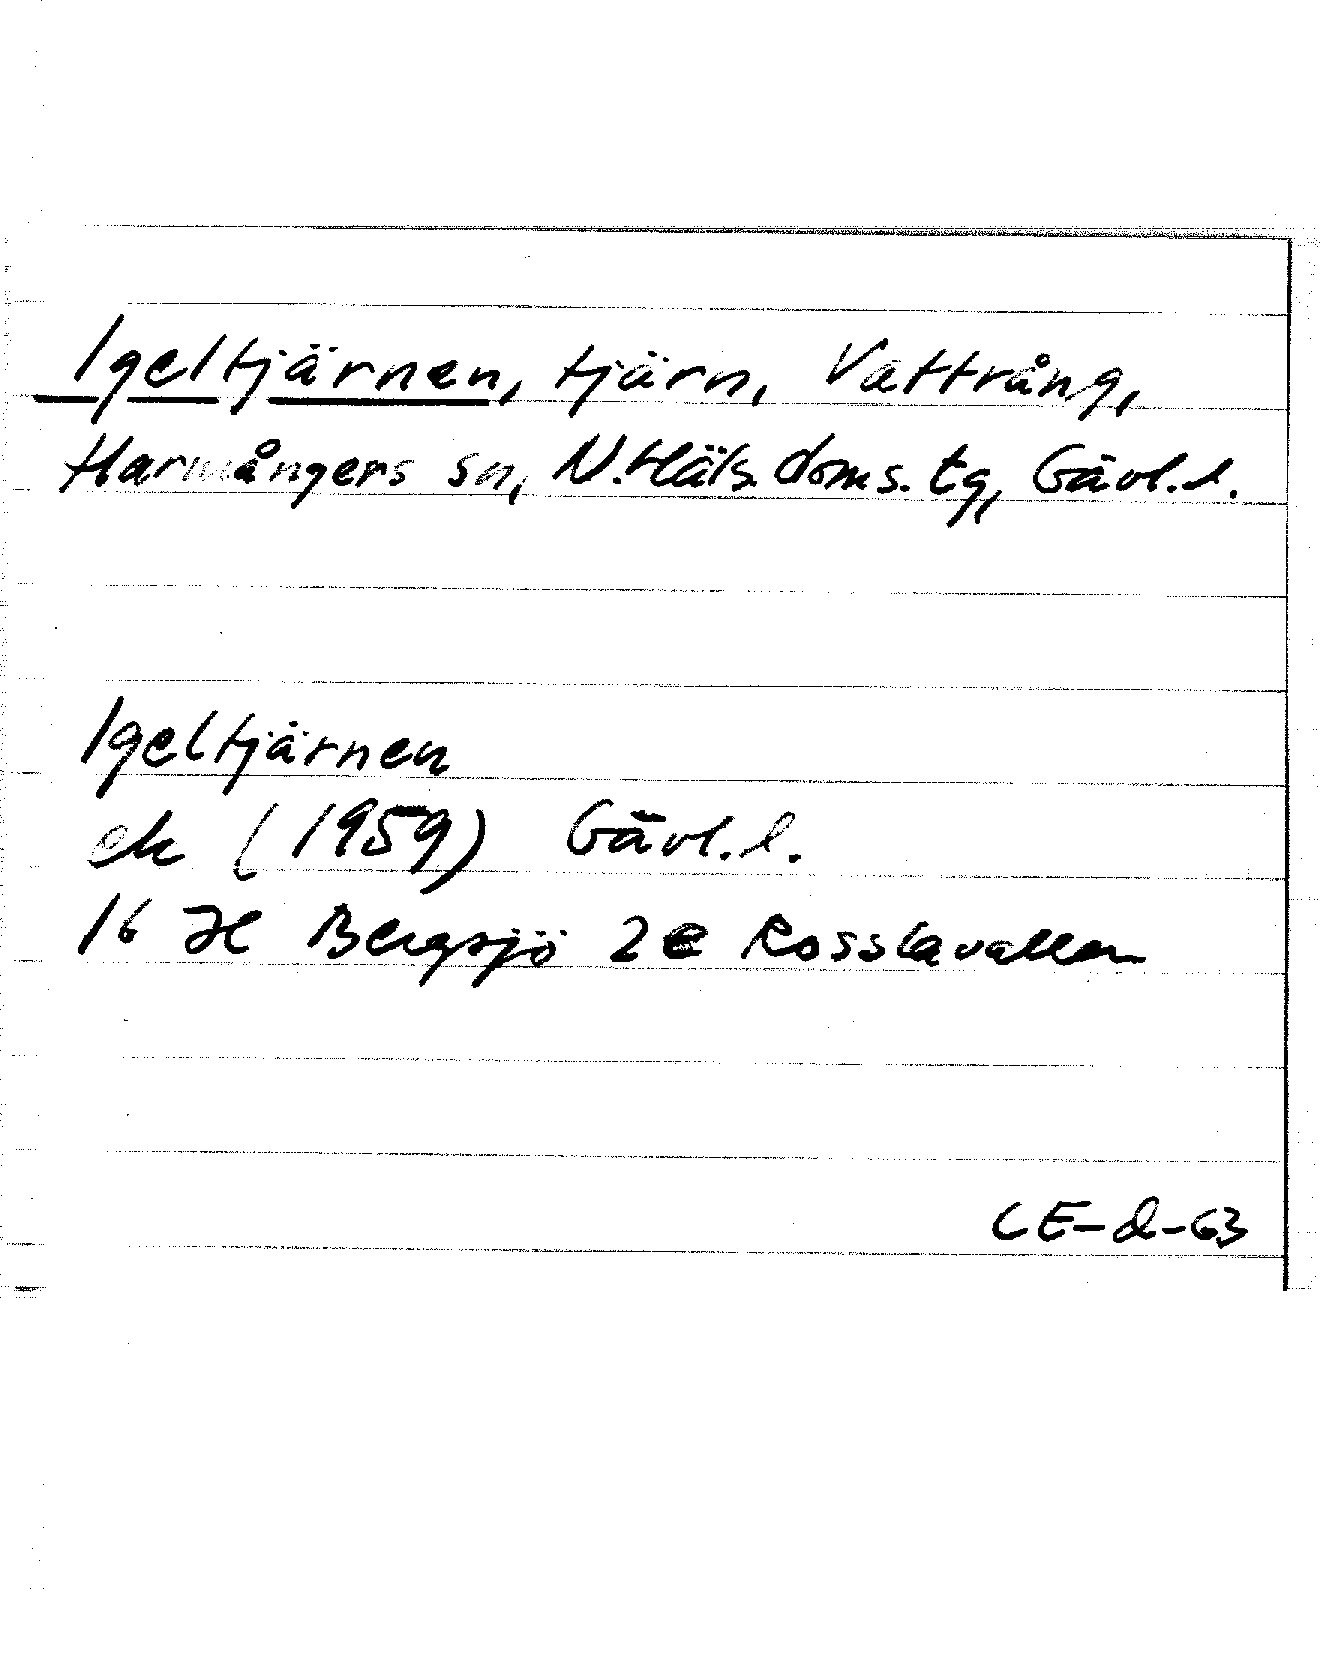 Igeltjärnen, tjärn, Vattrång,
Harmångers sn, N.Häls. doms. tg, Gävl.l.
Igeltjärnen
ek (1959) Gävl.l.
16 H Bergsjö 2e Rosslavallen
CE-d-63